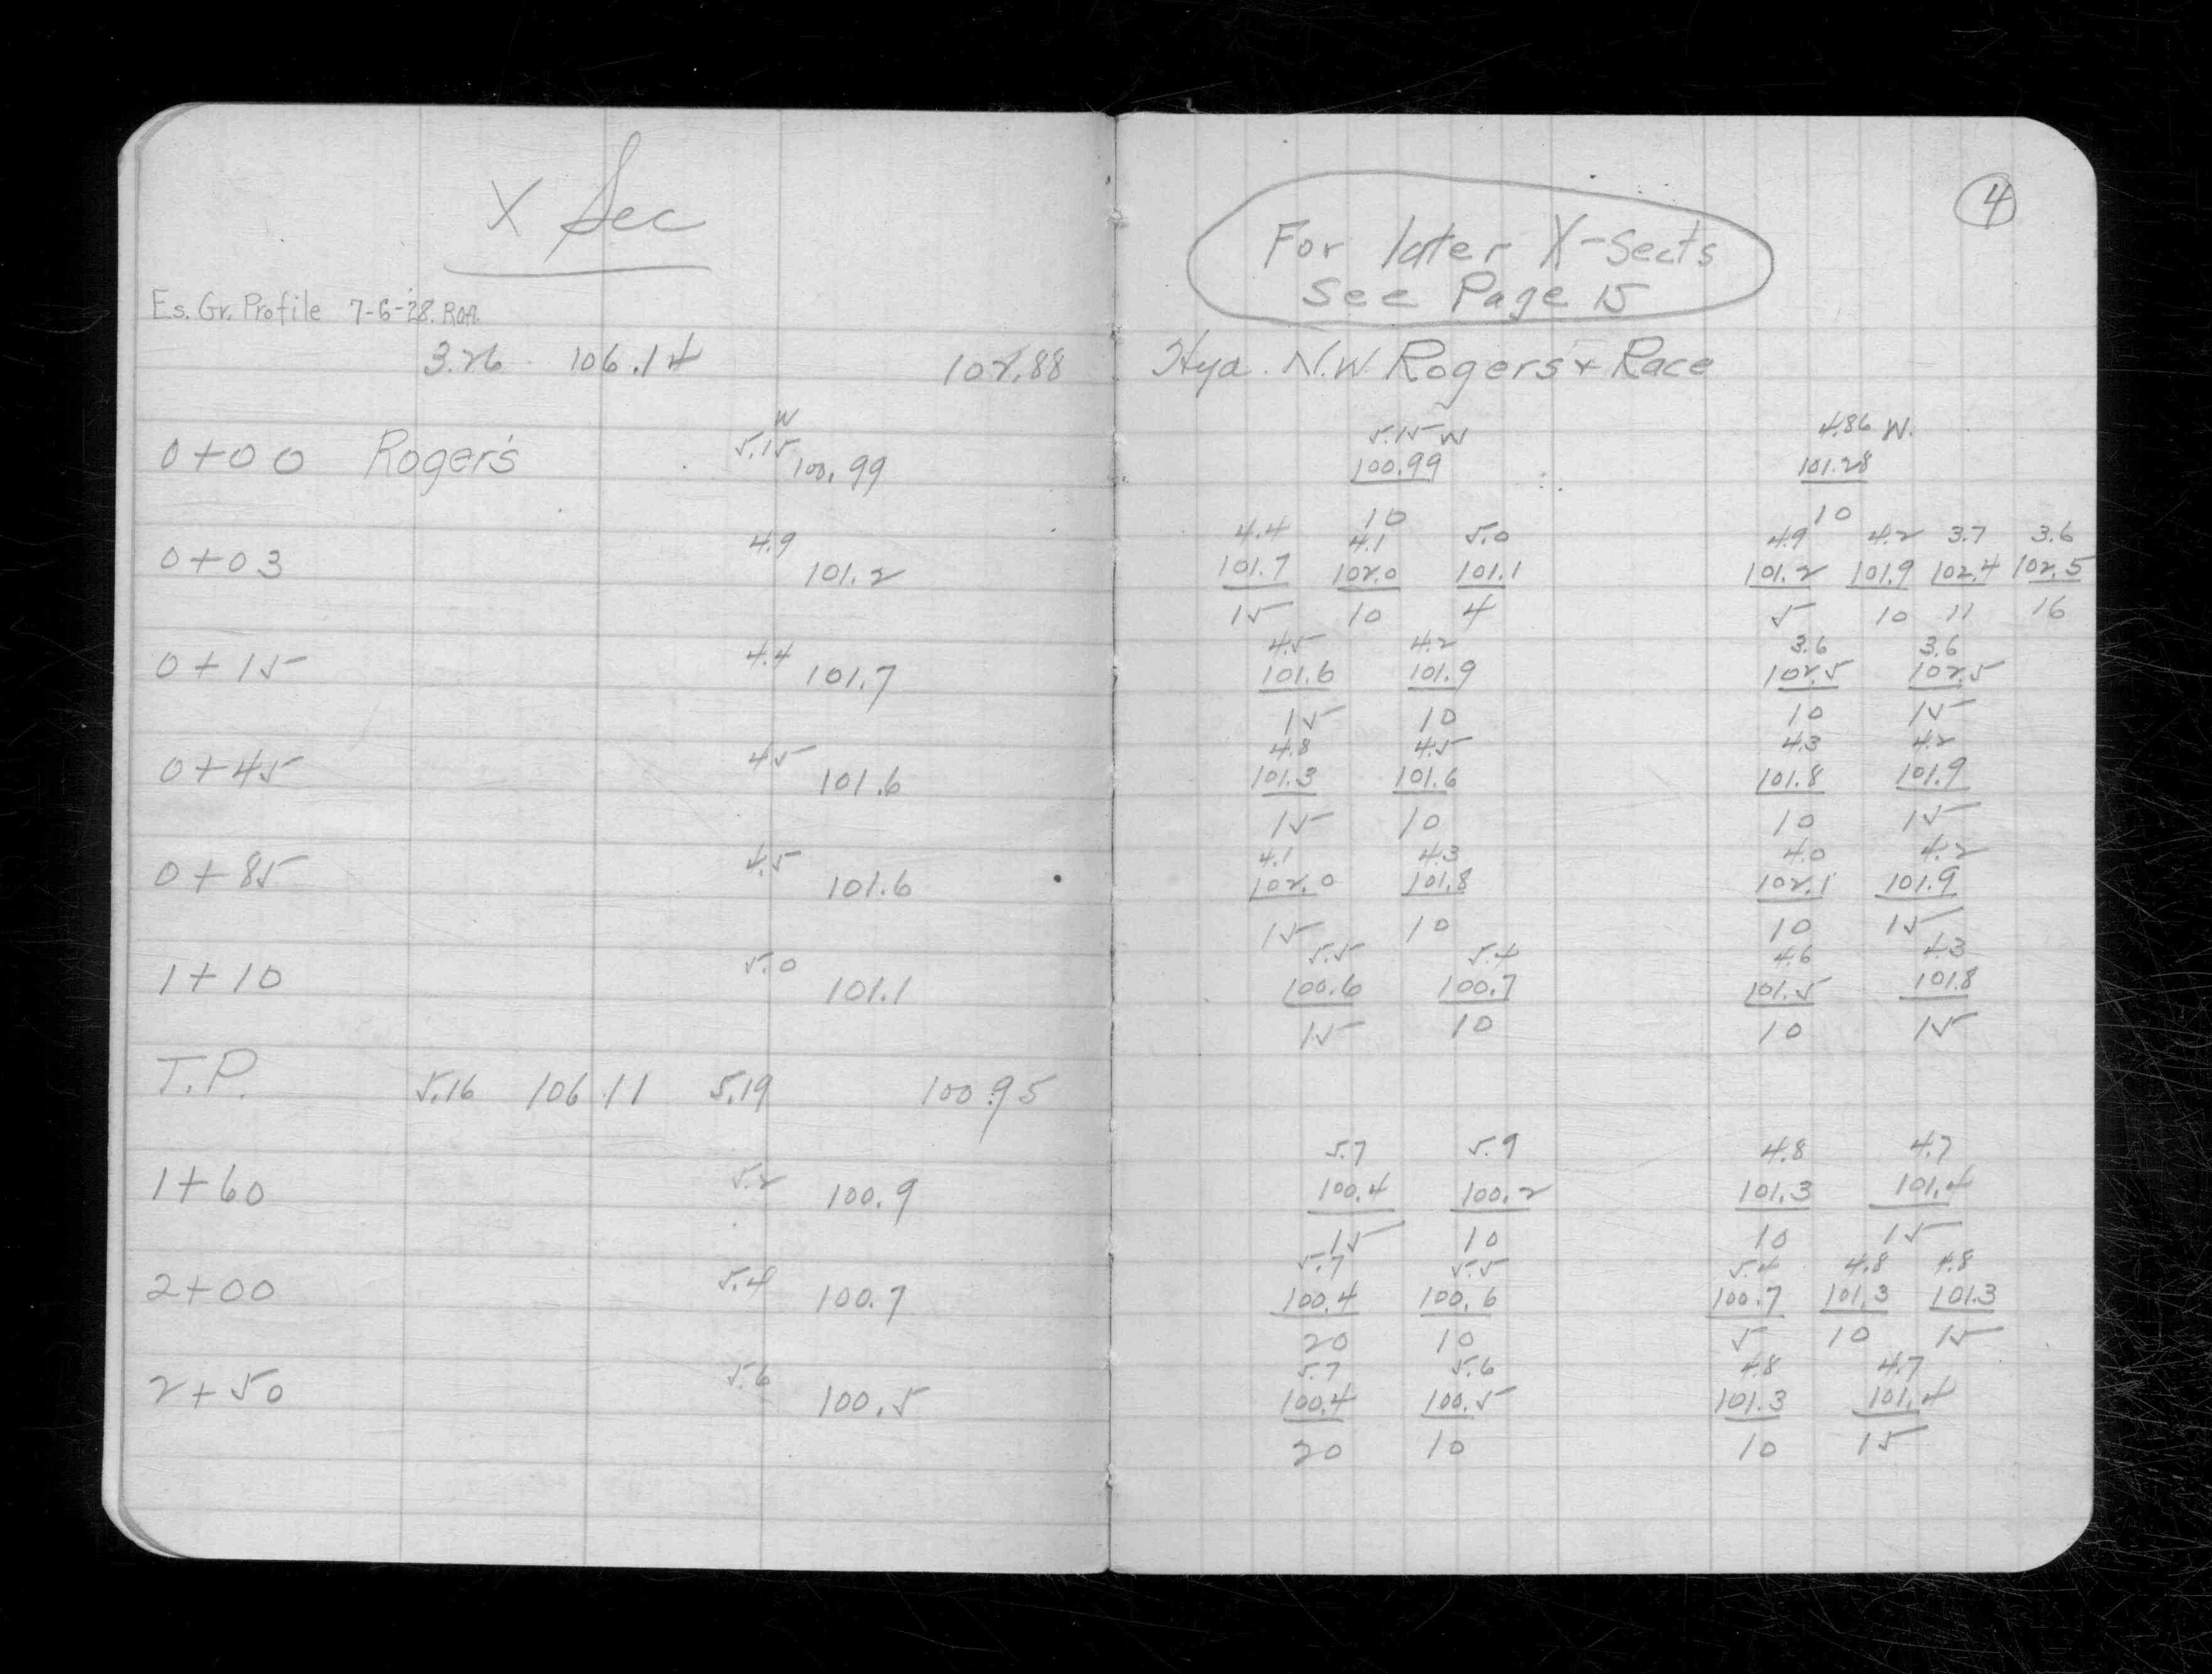 X Sec
Es. Gr. Profile 7-6-'28. R.O.A.
3.26 106.14 102.88
W
0+00 Rogers 5.15 100.99
4.9
0+03 101.2
4.4
0+15 101.7
4.5
0+45 101.6
4.5
0+85 101.6
5.0
1+10 101.1
T.P. 5.16 106.11 5.19 100.95
5.2
1+60 100.9
5.4
2+00 100.7
5.6
2+50 100.5
4
For later X-Sects
See Page 15
Hyd. N.W. Rogers & Race
5.15 W 4.86 W.
100.99 101.28
10 10
4.4 4.1 5.0 4.9 4.2 3.7 3.6
101.7 102.0 101.1 101.2 101.9 102.4 102.5
15 10 4 5 10 11 16
4.5 4.2 3.6 3.6
101.6 101.9 102.5 102.5
15 10 10 15
4.8 4.5 4.3 4.2
101.3 101.6 101.8 101.9
15 10 10 15
4.1 4.3 4.0 4.2
102.0 101.8 102.1 101.9
15 10 10 15
5.5 5.4 4.6 4.3
100.6 100.7 101.5 101.8
15 10 10 15
5.7 5.9 4.8 4.7
100.4 100.2 101.3 101.4
15 10 10 15
5.7 5.5 5.4 4.8 4.8
100.4 100.6 100.7 101.3 101.3
20 10 5 10 15
5.7 5.6 4.8 4.7
100.4 100.5 101.3 101.4
20 10 10 15